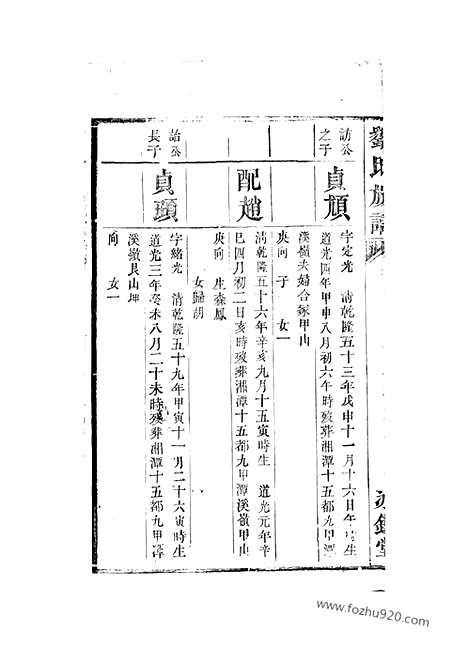 劉氏族譜
訪公
之子
貞頎
字定光 清乾隆五十三年戊申十一月十六日午時生
道光四年甲申八月初六午時殁葬湘潭十五都九甲潭
溪嶺夫婦合冢甲山
庚向 子 女一
配趙
清乾隆五十六年辛亥九月十五寅時生 道光元年辛
巳四月初二日亥時殁葬湘潭十五都九甲潭溪嶺甲山
庚向 生森鳳
女歸胡
詒公
長子
貞頭
字緒光 清乾隆五十九年甲寅十一月二十六寅時生
道光三年癸未八月二十未時殁葬湘潭十五都九甲潭
溪嶺艮山坤
向 女一
www.fozhu920.com